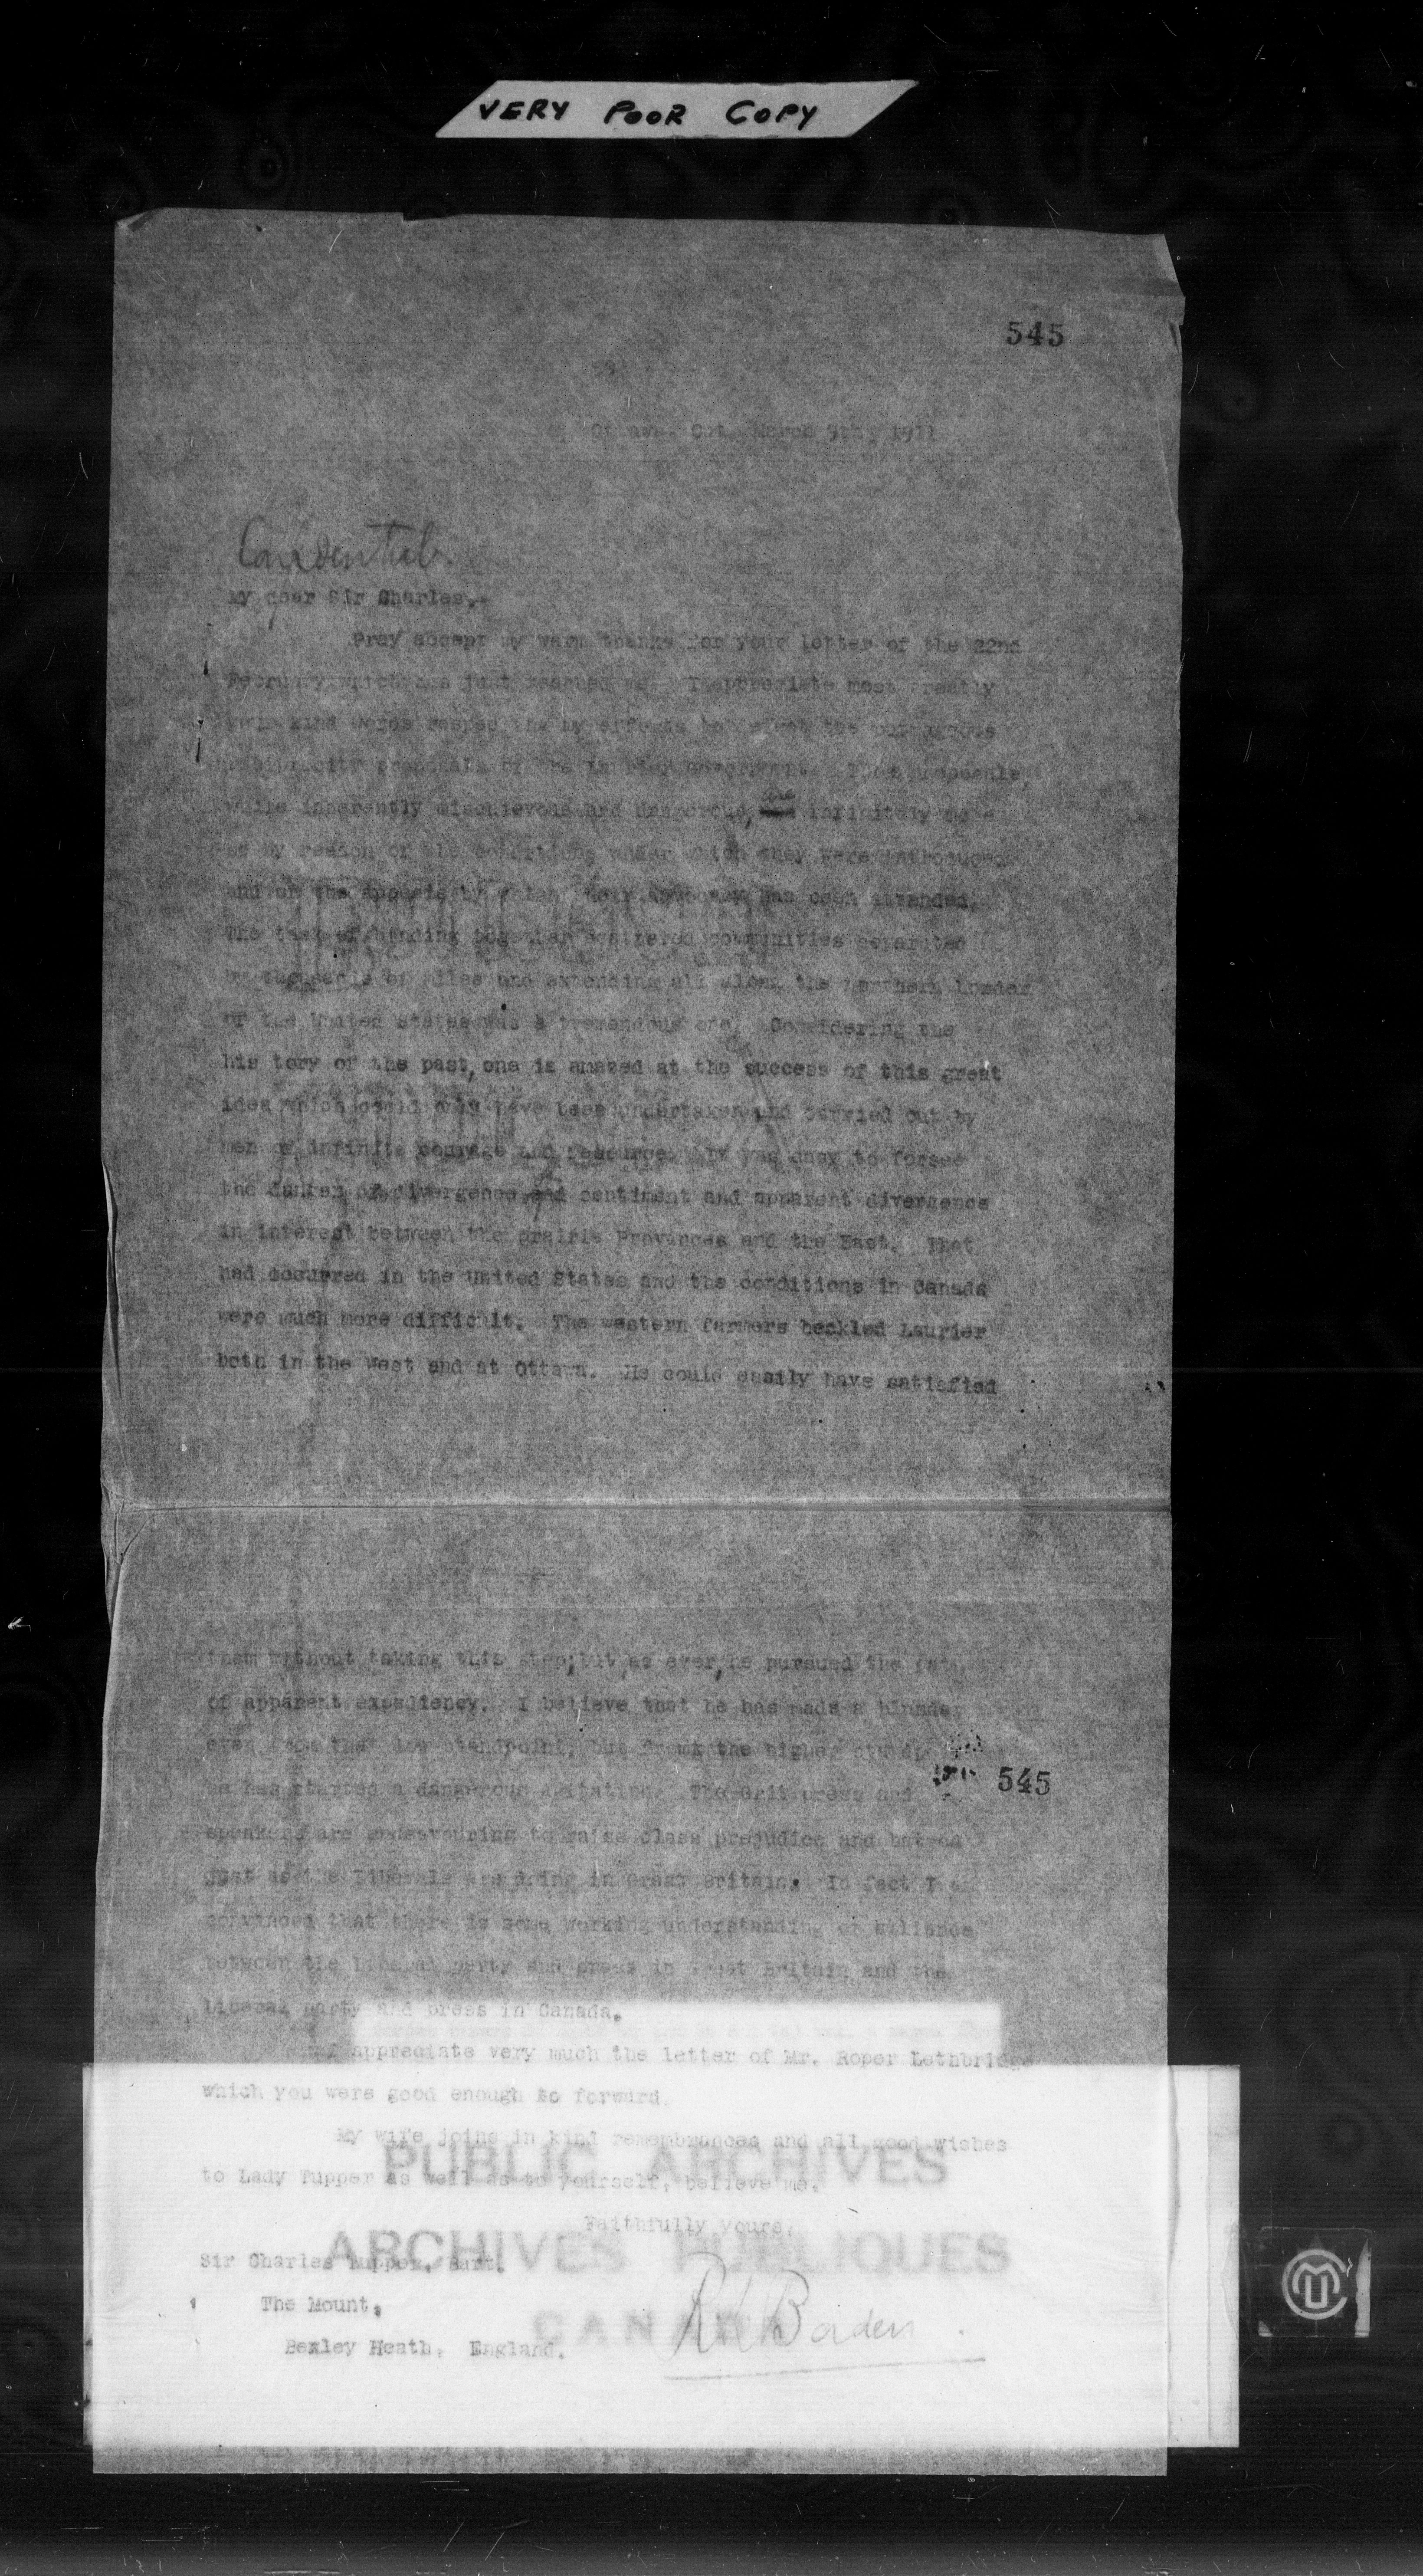 VERY POOR COPY
545
Ottawa, Ont. March 5th, 1911
Confidential.
My dear Sir Charles,-
Pray accept my warm thanks for your letter of the 22nd
February which has just reached me. I appreciate most greatly
your kind words respecting my efforts the outrageous
reciprocity proposals of the Laurier Government. proposals,
while inherently mischievous and dangerous, are infinitely more
so by reason of the conditions under which they were introduced
and of the by which their advocacy has been attended.
The task of binding together scattered communities separated
by thousands of miles and extending all along the northern border
of the United States was a tremendous one. Considering the
his tory of the past, one is amazed at the success of this great
idea which could only have been undertaken and carried out by
men of infinite courage and resource. It was easy to forsee
the danger of divergence sentiment and apparent divergence
in interest between the prairie Provinces and the East. That
had occurred in the United States and the conditions in Canada
were much more difficult. The western farmers heckled Laurier
both in the West and at Ottawa. He could easily have satisfied
them without taking this step; but, as ever, he pursued the path
of apparent expediency. I believe that he has made a blunder
even from that low standpoint, but from the higher
he has started a dangerous agitation. The Grit press and
545
speakers are endeavouring to raise class prejudice and hatred
just as the Liberals are doing in Great Britain. In fact I am
convinced that there is some working understanding or alliance
between the Liberal party and press in Great Britain and the
Liberal party and press in Canada.
I appreciate very much the letter of Mr. Roper Lethbridge
which you were good enough to forward.
My wife joins in kind remembrances and all good wishes
to Lady Tupper as well as to yourself, believe me,
PUBLIC ARCHIVES
Faithfully yours,
ARCHIVES PUBLIQUES
Sir Charles Tupper, Bart.
The Mount,
CANADA
R L Borden
Bexley Heath, England.